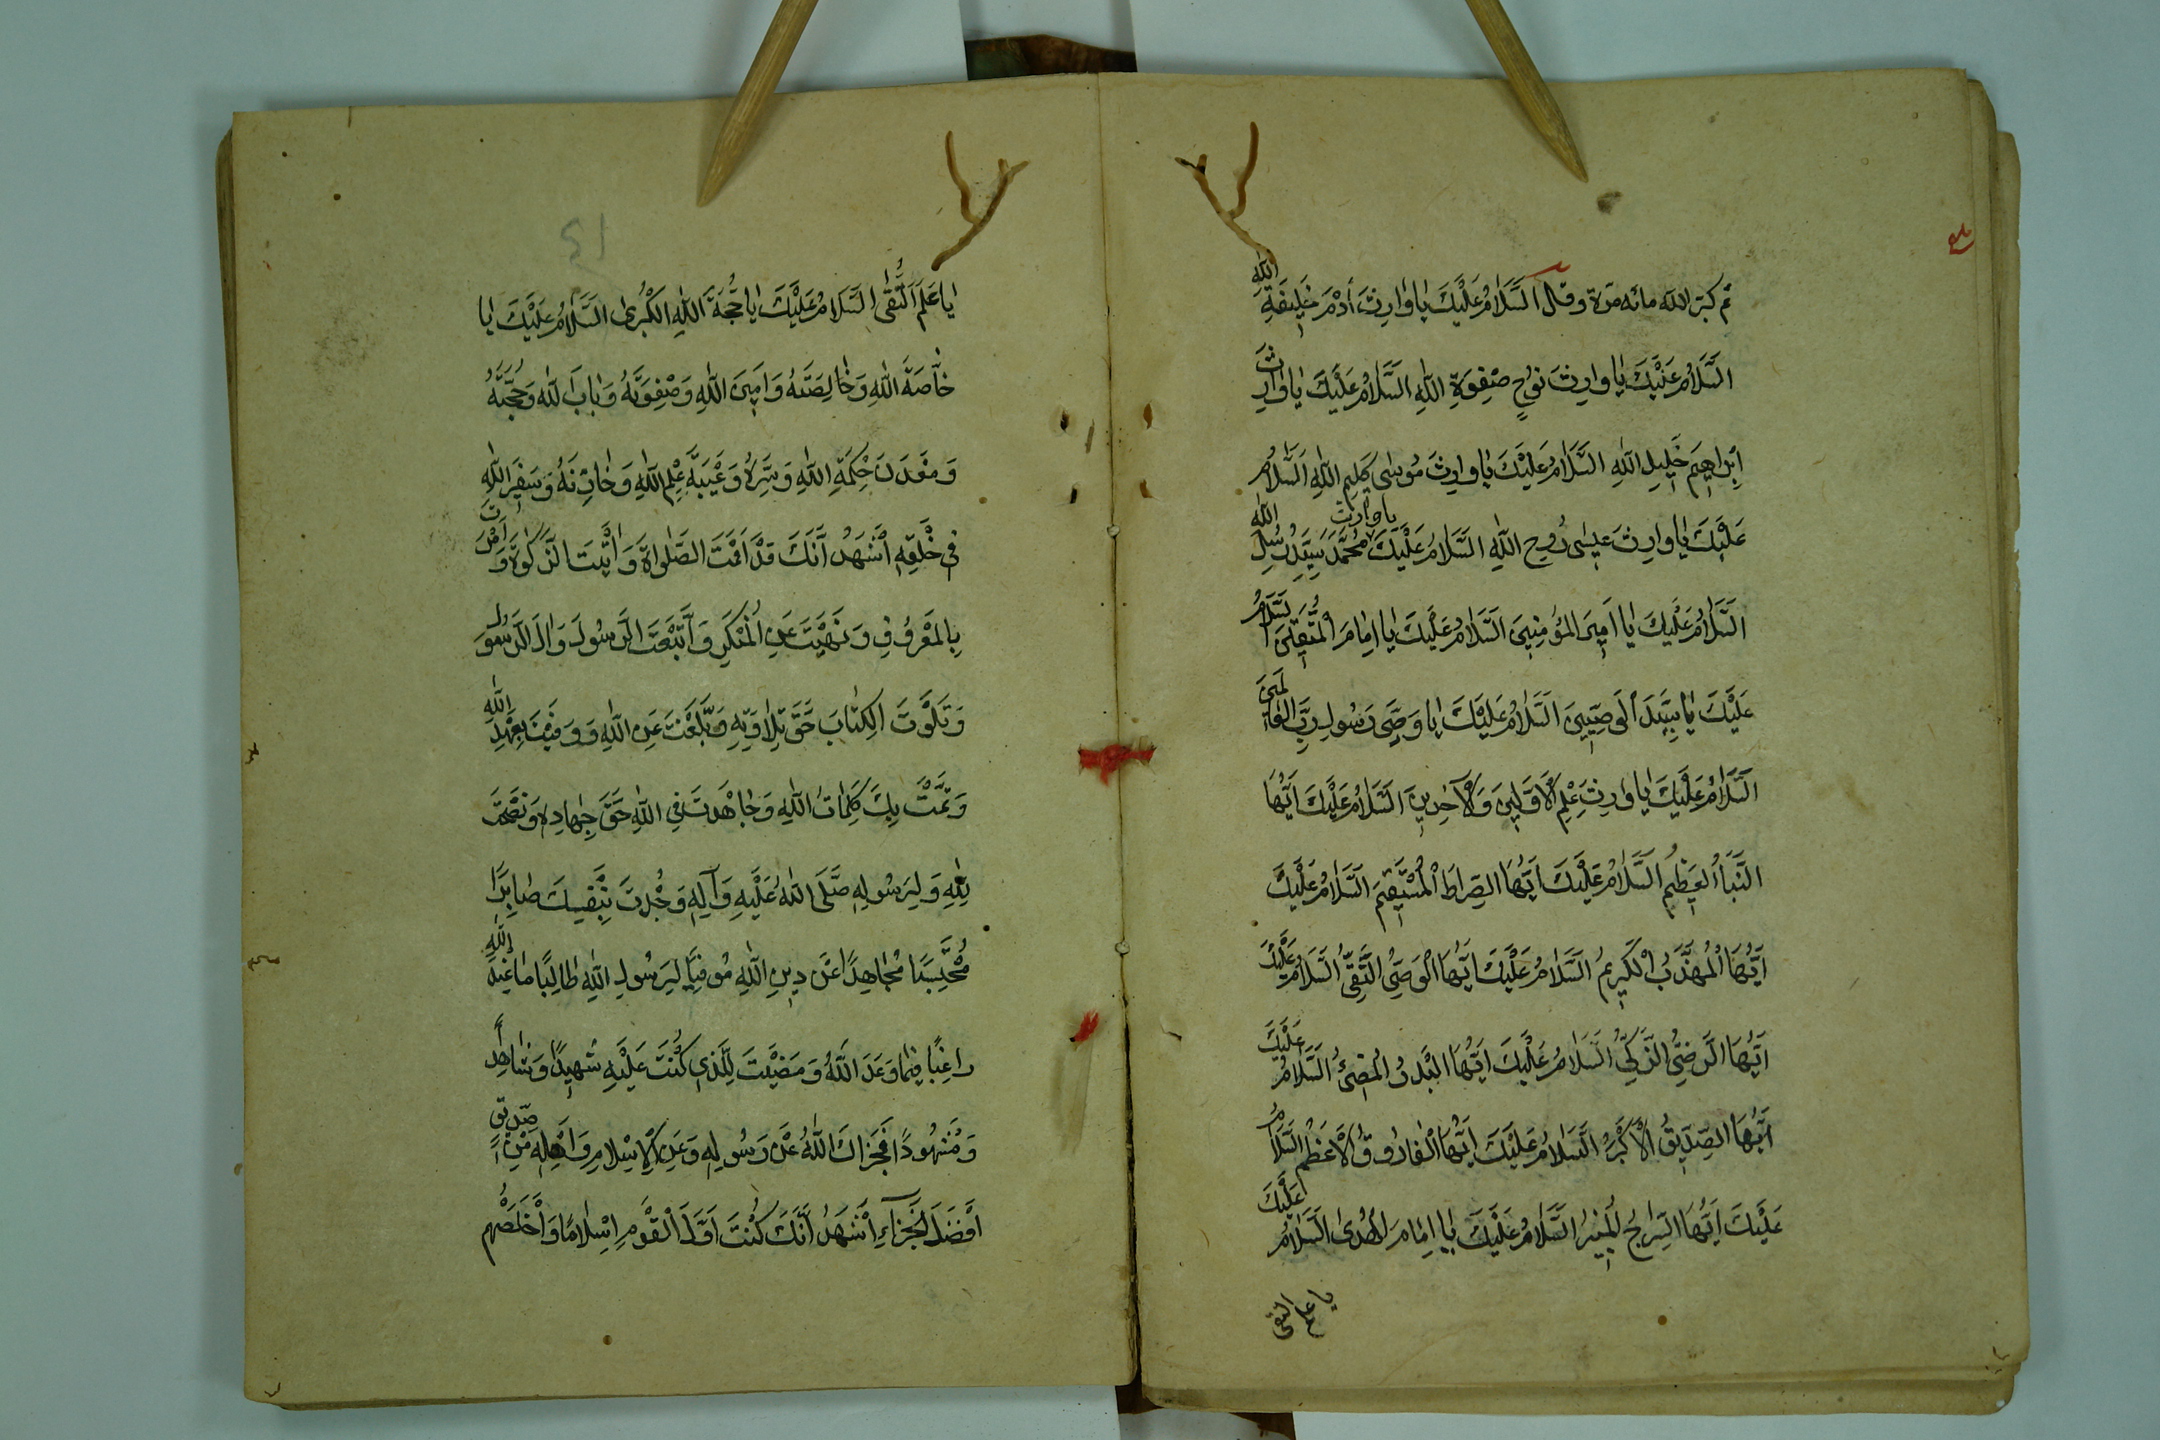 ثم كبر الله مائه مرة و قل السَّلَامُ عَلَيْكَ يَا وَارِثَ آدَمَ خَلِيفَةِ اللهِ
السَّلَامُ عَلَيْكَ يَا وَارِثَ نُوحٍ صَفْوَةِ اللهِ السَّلَامُ عَلَيْكَ يَا وَارِثَ
اِبْرَاهِيمَ خَلِيلِ اللهِ السَّلَامُ عَلَيْكَ يَا وَارِثَ مُوسَى كَلِيمِ اللهِ السَّلَامُ
عَلَيْكَ يَا وَارِثَ عِيسَى رُوحِ اللهِ السَّلَامُ عَلَيْكَ يا وارث مُحَمَّدٍ سَيِّدِ رُسُلِ الله
السَّلَامُ عَلَيْكَ يَا اَمِيرَ الْمُؤْمِنِينَ السَّلَامُ عَلَيْكَ يَا اِمَامَ الْمُتَّقِينَ السَّلَامُ
عَلَيْكَ يَا سَيِّدَ الْوَصِيِّينَ السَّلَامُ عَلَيْكَ يَا وَصِيَّ رَسُولِ رَبِّ الْعَالَمِينَ
السَّلَامُ عَلَيْكَ يَا وَارِثَ عِلْمِ الْاَوَّلِينَ وَالْآخِرِينَ السَّلَامُ عَلَيْكَ اَيُّهَا
النَّبَأُ الْعَظِيمُ السَّلَامُ عَلَيْكَ اَيُّهَا الصِّرَاطُ الْمُسْتَقِيمُ السَّلَامُ عَلَيْكَ
اَيُّهَا الْمُهَذَّبُ الْكَرِيمُ السَّلَامُ عَلَيْكَ اَيُّهَا الْوَصِيُّ التَّقِيُّ السَّلَامُ عَلَيْكَ
اَيُّهَا الرَّضِيُّ الزَّكِيُّ السَّلَامُ عَلَيْكَ اَيُّهَا الْبَدْرُ الْمُضِيءُ السَّلَامُ عَلَيْكَ
اَيُّهَا الصِّدِّيقُ الْاَكْبَرُ السَّلَامُ عَلَيْكَ اَيُّهَا الْفَارُوقُ الْاَعْظَمُ السَّلَامُ
عَلَيْكَ اَيُّهَا السِّرَاجُ الْمُنِيرُ السَّلَامُ عَلَيْكَ يَا اِمَامَ الْهُدَى السَّلَامُ عَلَيْكَ
يا علم التقى
يَا عَلَمَ التُّقَى السَّلَامُ عَلَيْكَ يَا حُجَّةَ اللهِ الْكُبْرَى السَّلَامُ عَلَيْكَ يَا
خَاصَّةَ اللهِ وَخَالِصَتَهُ وَاَمِينَ اللهِ وَصَفْوَتَهُ وَبَابَ اللهِ وَحُجَّتَهُ
وَمَعْدِنَ حِكْمَةِ اللهِ وَسِرِّهُ وَعَيْبَةَ عِلْمِ اللهِ وَخَازِنَهُ وَسَفِيرَ اللهِ
فِي خَلْقِهِ اَشْهَدُ اَنَّكَ قَدْ اَقَمْتَ الصَّلَوٰةَ وَآتَيْتَ الزَّكَوٰةَ وَ اَمَرْتَ
بِالْمَعْرُوفِ وَنَهَيْتَ عَنِ الْمُنْكَرِ وَاتَّبَعْتَ الرَّسُولَ وَالَ الرَّسُولِ
وَتَلَوْتَ الْكِتَابَ حَقَّ تِلَاوَتِهِ وَبَلَّغْتَ عَنِ اللهِ وَوَفَيْتَ بِعَهْدِ اللهِ
وَتَمَّتْ بِكَ كَلِمَاتُ اللهِ وَجَاهَدْتَ فِي اللهِ حَقَّ جِهَادِهِ وَنَصَحْتَ
لِلهِ وَلِرَسُولِهِ صَلَّى اللهُ عَلَيْهِ وَآلِهِ وَجُدْتَ بِنَفْسِكَ صَابِرًا
مُحْتَسِبًا مُجَاهِدًا عَنْ دِينِ اللهِ مُوقِنًا لِرَسُولِ اللهِ طَالِبًا مَا عِنْدَ اللهِ
رَاغِبًا فِيمَا وَعَدَ اللهُ وَمَضَيْتَ لِلَّذِي كُنْتَ عَلَيْهِ شَهِيدًا وَشَاهِدًا
وَمَشْهُودًا فَجَزَاكَ اللهُ عَنْ رَسُولِهِ وَعَنِ الْاِسْلَامِ وَاَهْلِهِ مِنْ صِدِّيقٍ
اَفْضَلَ الْجَزَاءِ اَشْهَدُ اَنَّكَ كُنْتَ اَوَّلَ الْقَوْمِ اِسْلَامًا وَاَخْلَصَهُمْ